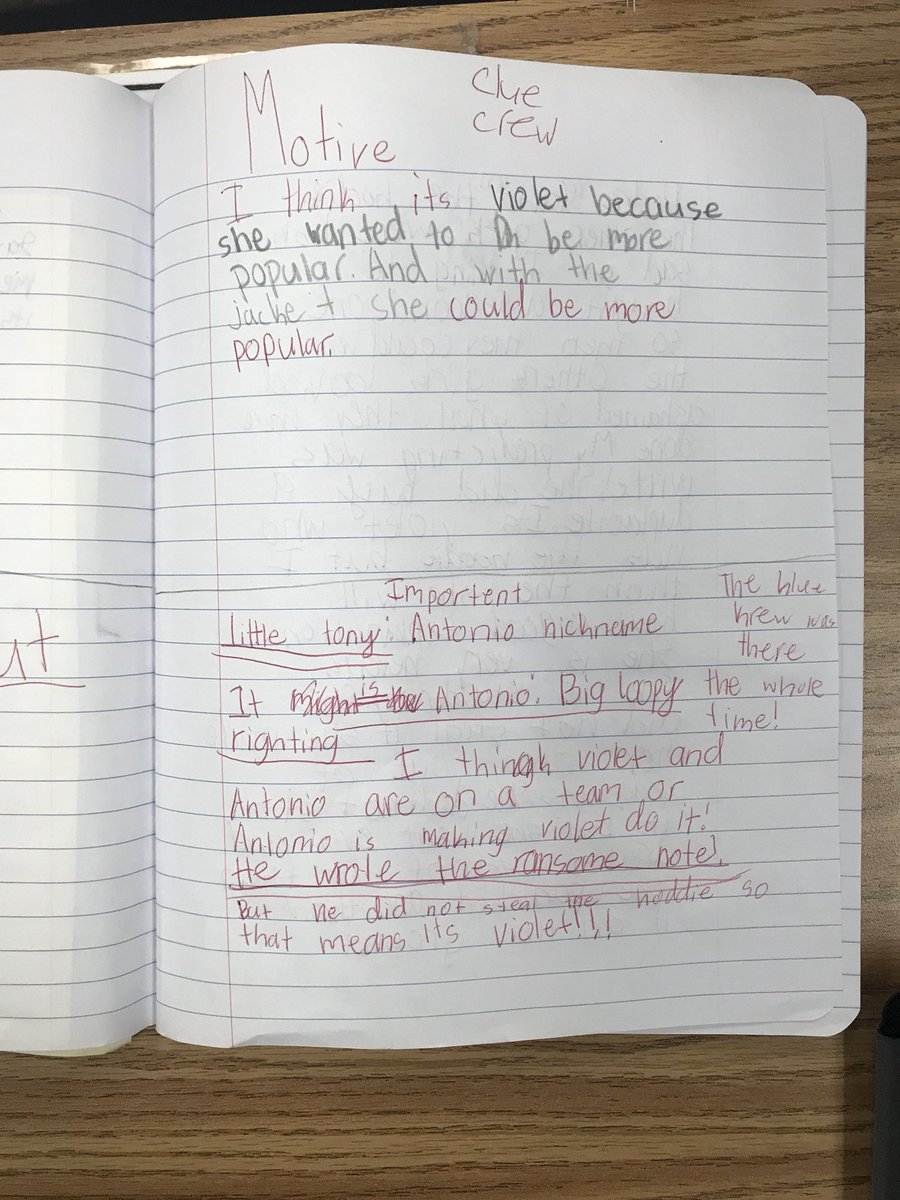 Clue
crew
Motive
I think its violet because
she wanted to be more
popular. And with the
jacket she could be more
popular.
Importent
little tony: Antonio nickname
The blue
krew was
there
the whole
time!
It is Antonio: Big loopy
righting
I thingh violet and
Antonio are on a team or
Antonio is making violet do it!
He wrole the ransome note!
But he did not steal the hoddie so
that means its violet!!!!
ut